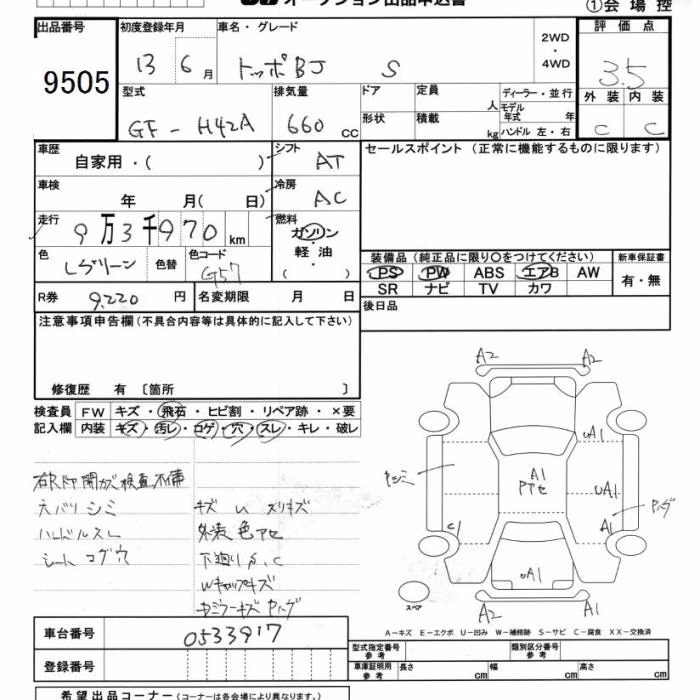 オークション出品申込書
①会場控
出品番号 初度登録年月 車名・グレード 2WD・4WD 評価点
9505 13 6月 トッポBJ S 3.5
型式 排気量 ドア 定員 人 ディーラー・並行 外装 内装
GF-H42A 660cc 形状 積載 kg モデル年式 年 ハンドル 左・右 C C
車歴 自家用・( ) シフト AT セールスポイント(正常に機能するものに限ります)
車検 年 月( 日) 冷房 AC
走行 9万3千970km 燃料 ガソリン・軽油 ( )
色 Lグリーン 色替 色コード G57
装備品(純正品に限り○をつけてください) 新車保証書
PS PW ABS エアB AW 有・無
SR ナビ TV カワ
R券 9,220円 名変期限 月 日 後日品
注意事項申告欄(不具合内容等は具体的に記入して下さい)
修復歴 有 〔箇所 〕
検査員記入欄 FW キズ・飛石・ヒビ割・リペア跡・×要
内装 キズ・汚レ・コゲ・穴・スレ・キレ・破レ
右R ドア 開カズ 検査不備
天バリ シミ キズ U スリキズ
ハンドルスレ 外装 色アセ
シート コゲ穴 下廻りS.C
Wキャップキズ
A2 A2
UA1
A1
UA1
C1 A1
UA1
A2 A1
スペア
A-キズ E-エクボ U-凹み W-補修跡 S-サビ C-腐食 XX-交換済
車台番号 0533917
登録番号
型式指定番号 参考 類別区分番号 参考
車庫証明用 参考 長さ cm 幅 cm 高さ cm
希望出品コーナー(コーナーは各会場により異なります。)